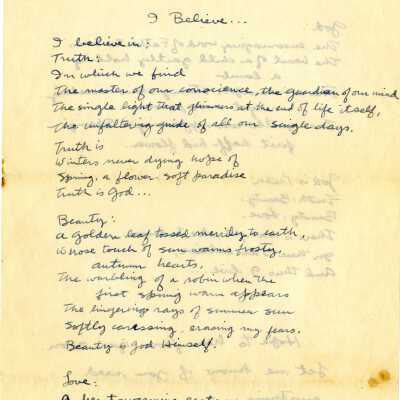 I Believe...
I believe in:
Truth:
In which we find
The master of our conscience, the guardian of our mind
The single light that glimmers at the end of life itself,
The unfaltering guide of all our single days.
Truth is
Winters never dying hope of
Spring, a flower soft paradise
Truth is God...
Beauty:
A golden leaf tossed merrily to earth,
Whose touch of sun warms frosty
autumn hearts.
The warbling of a robin when the
first spring warm appears
The lingering rays of summer sun
Softly caressing, erasing my fears.
Beauty is God Himself.
Love: